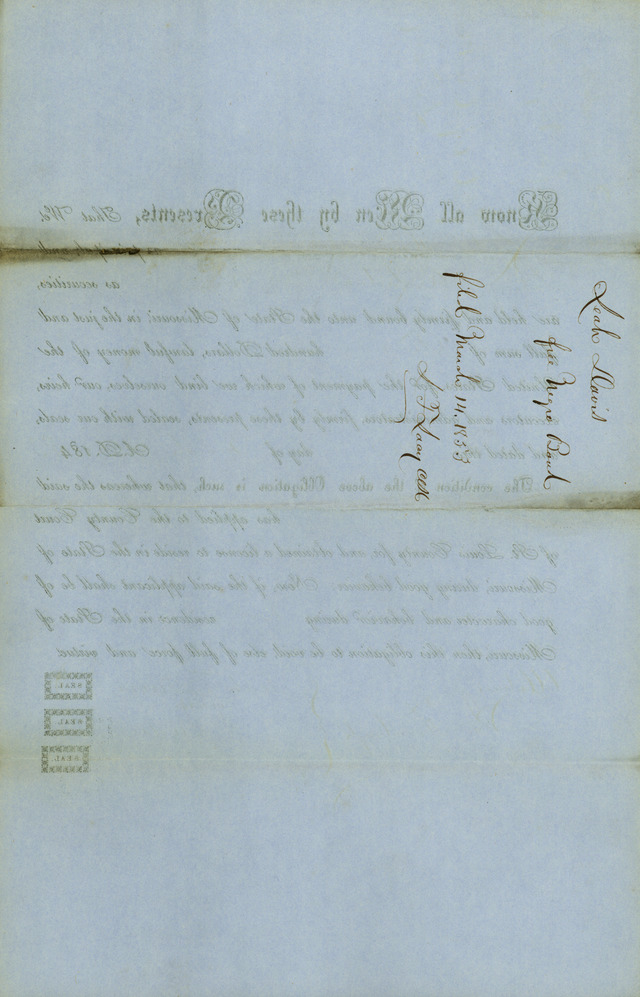 Leah Davis
free Negro Bond
filed March 14, 1853
Know all Men by these Presents, That We
as securities,
are held and firmly bound unto the State of Missouri, in the just and
full sum of hundred Dollars, lawful money of the
United States, for the payment of which we bind ourselves, our heirs,
executors and administrators, firmly by these presents, sealed with our seals,
and dated this day of A.D. 184
The condition of the above Obligation is such, that whereas the said
has applied to the County Court
of St. Louis County for and obtained a license to reside in the State of
Missouri, during good behavior. Now, if the said applicant shall be of
good character and behavior during residence in the State of
Missouri, then this obligation to be void, else of full force and virtue.
SEAL
SEAL
SEAL